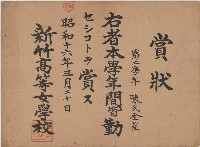 賞狀
第二學年
右者本學年間皆勤
セシコトヲ賞ス
昭和十六年三月二十日
新竹高等女學校